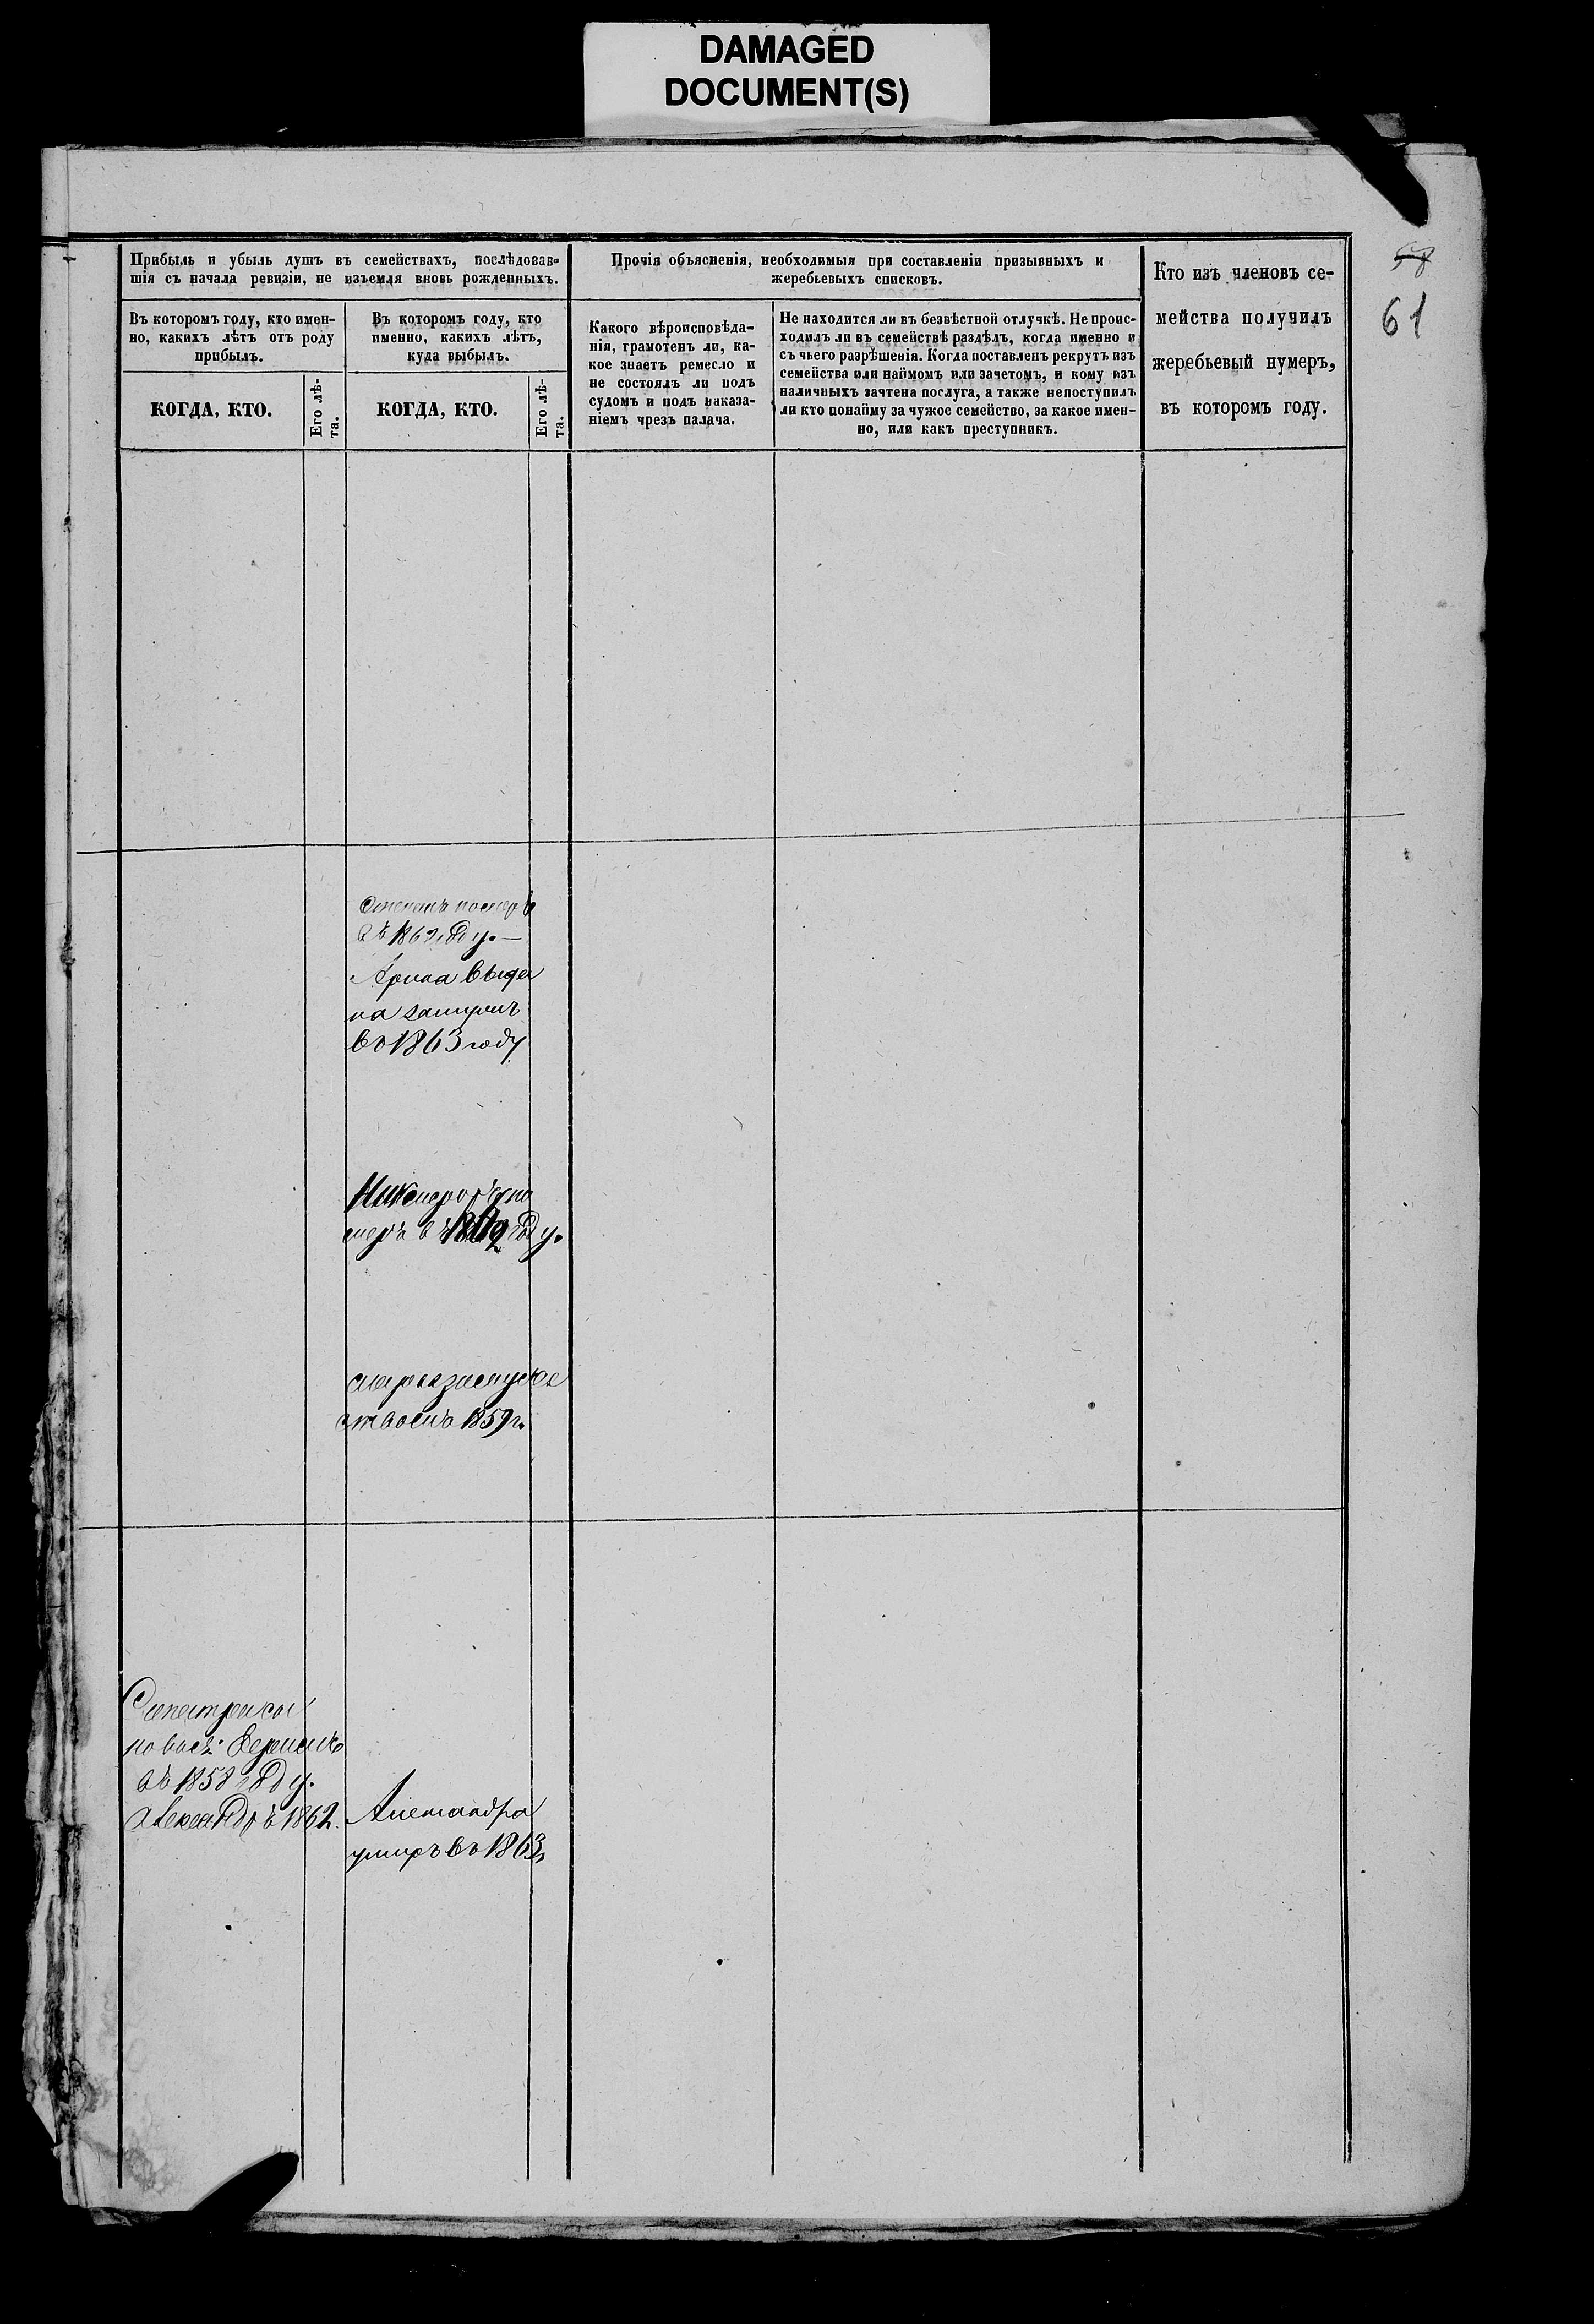 DAMAGED
DOCUMENT(S)
58
61
Прибыль и убыль душъ въ семействахъ, послѣдовав-
шія съ начала ревизіи, не изъемля вновь рожденныхъ.
Въ которомъ году, кто имен-
но, какихъ лѣтъ отъ роду
прибылъ.
КОГДА, КТО.
Его лѣ-
та.
Въ которомъ году, кто
именно, какихъ лѣтъ,
куда выбылъ.
КОГДА, КТО.
Его лѣ-
та.
Прочія объясненія, необходимыя при составленіи призывныхъ и
жеребьевыхъ списковъ.
Какого вѣроисповѣда-
нія, грамотенъ ли, ка-
кое знаетъ ремесло и
не состоялъ ли подъ
судомъ и подъ наказа-
ніемъ чрезъ палача.
Не находится ли въ безвѣстной отлучкѣ. Не проис-
ходилъ ли въ семействѣ раздѣлъ, когда именно и
съ чьего разрѣшенія. Когда поставленъ рекрутъ изъ
семейства или наймомъ или зачетомъ, и кому изъ
наличныхъ зачтена послуга, а также непоступилъ
ли кто понайму за чужое семейство, за какое имен-
но, или какъ преступникъ.
Кто изъ членовъ се-
мейства получилъ
жеребьевый нумеръ,
въ которомъ году.
въ 1862 году. —
выда
на замужъ
въ 1863 году
по
меръ в 1862 году.
1859 г.
въ 1858 году.
Александръ 1862.
умиръ въ 1863